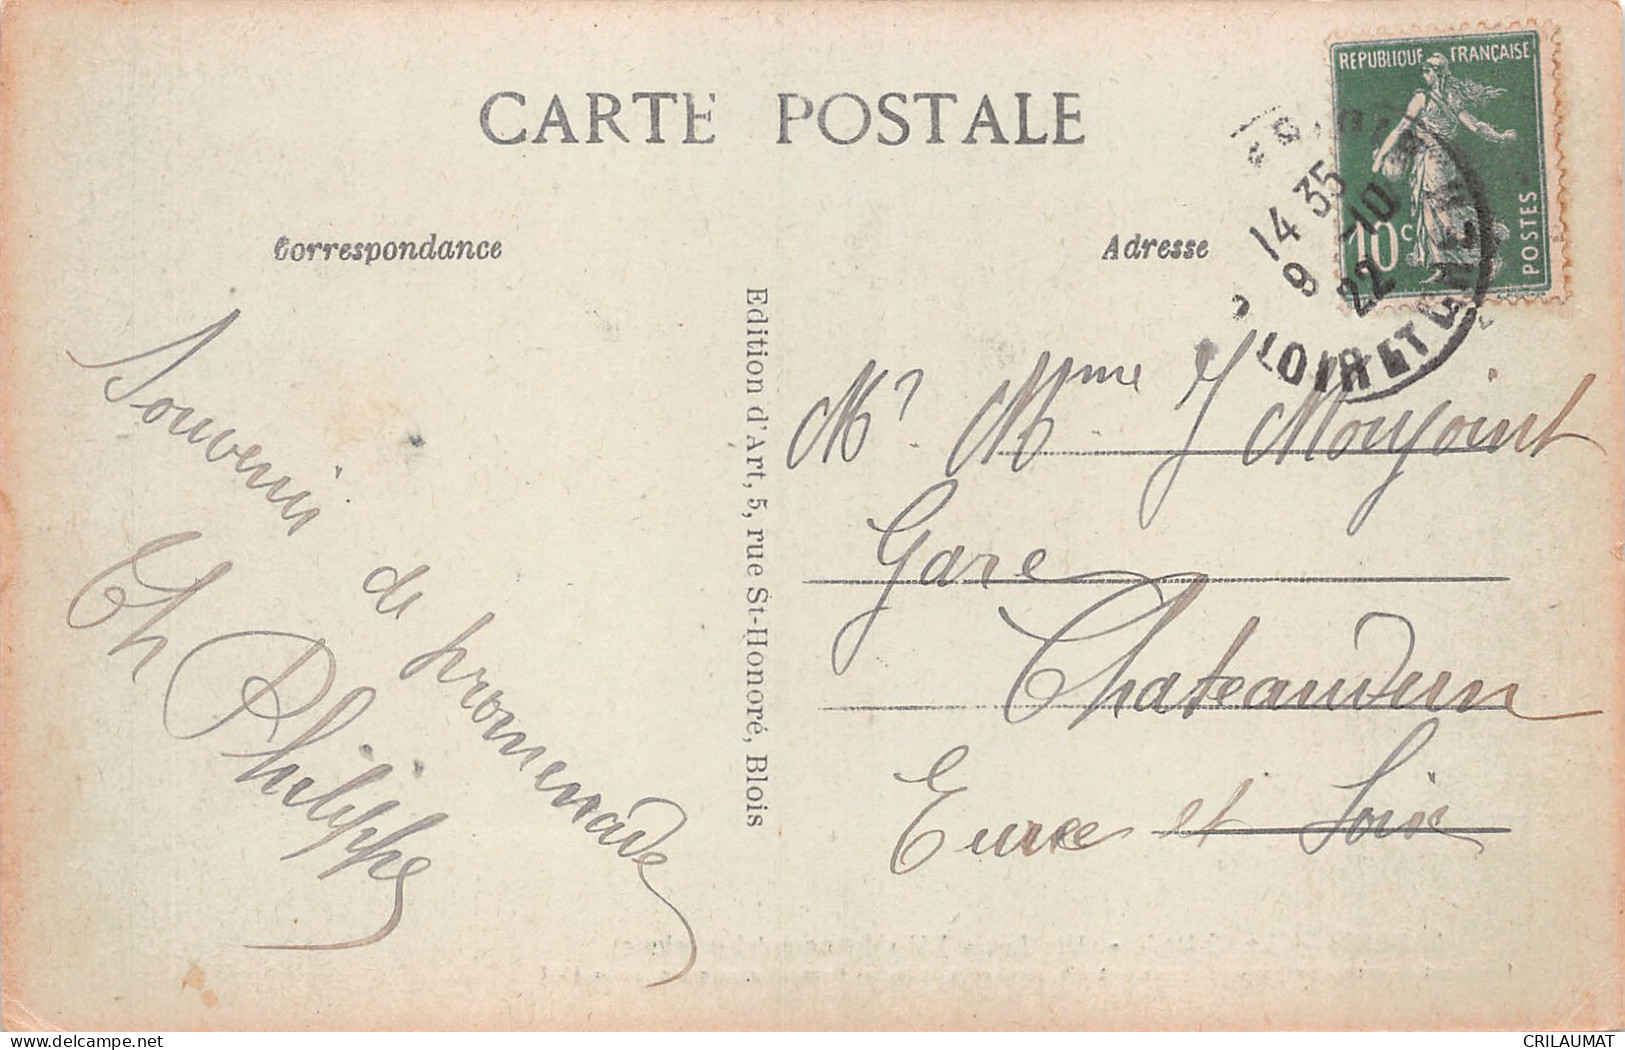 CARTE POSTALE
REPUBLIQUE FRANÇAISE
10c
POSTES
14 35
9 -10
22
LOIR ET CHER
Correspondance
Adresse
Souvenir
de promenade
Ch Philippe
Edition d'Art, 5, rue St-Honoré, Blois
Mr. Mme J Monjoint
Gare
Chateaudun
Eure et Loir
www.delcampe.net
CRILAUMAT